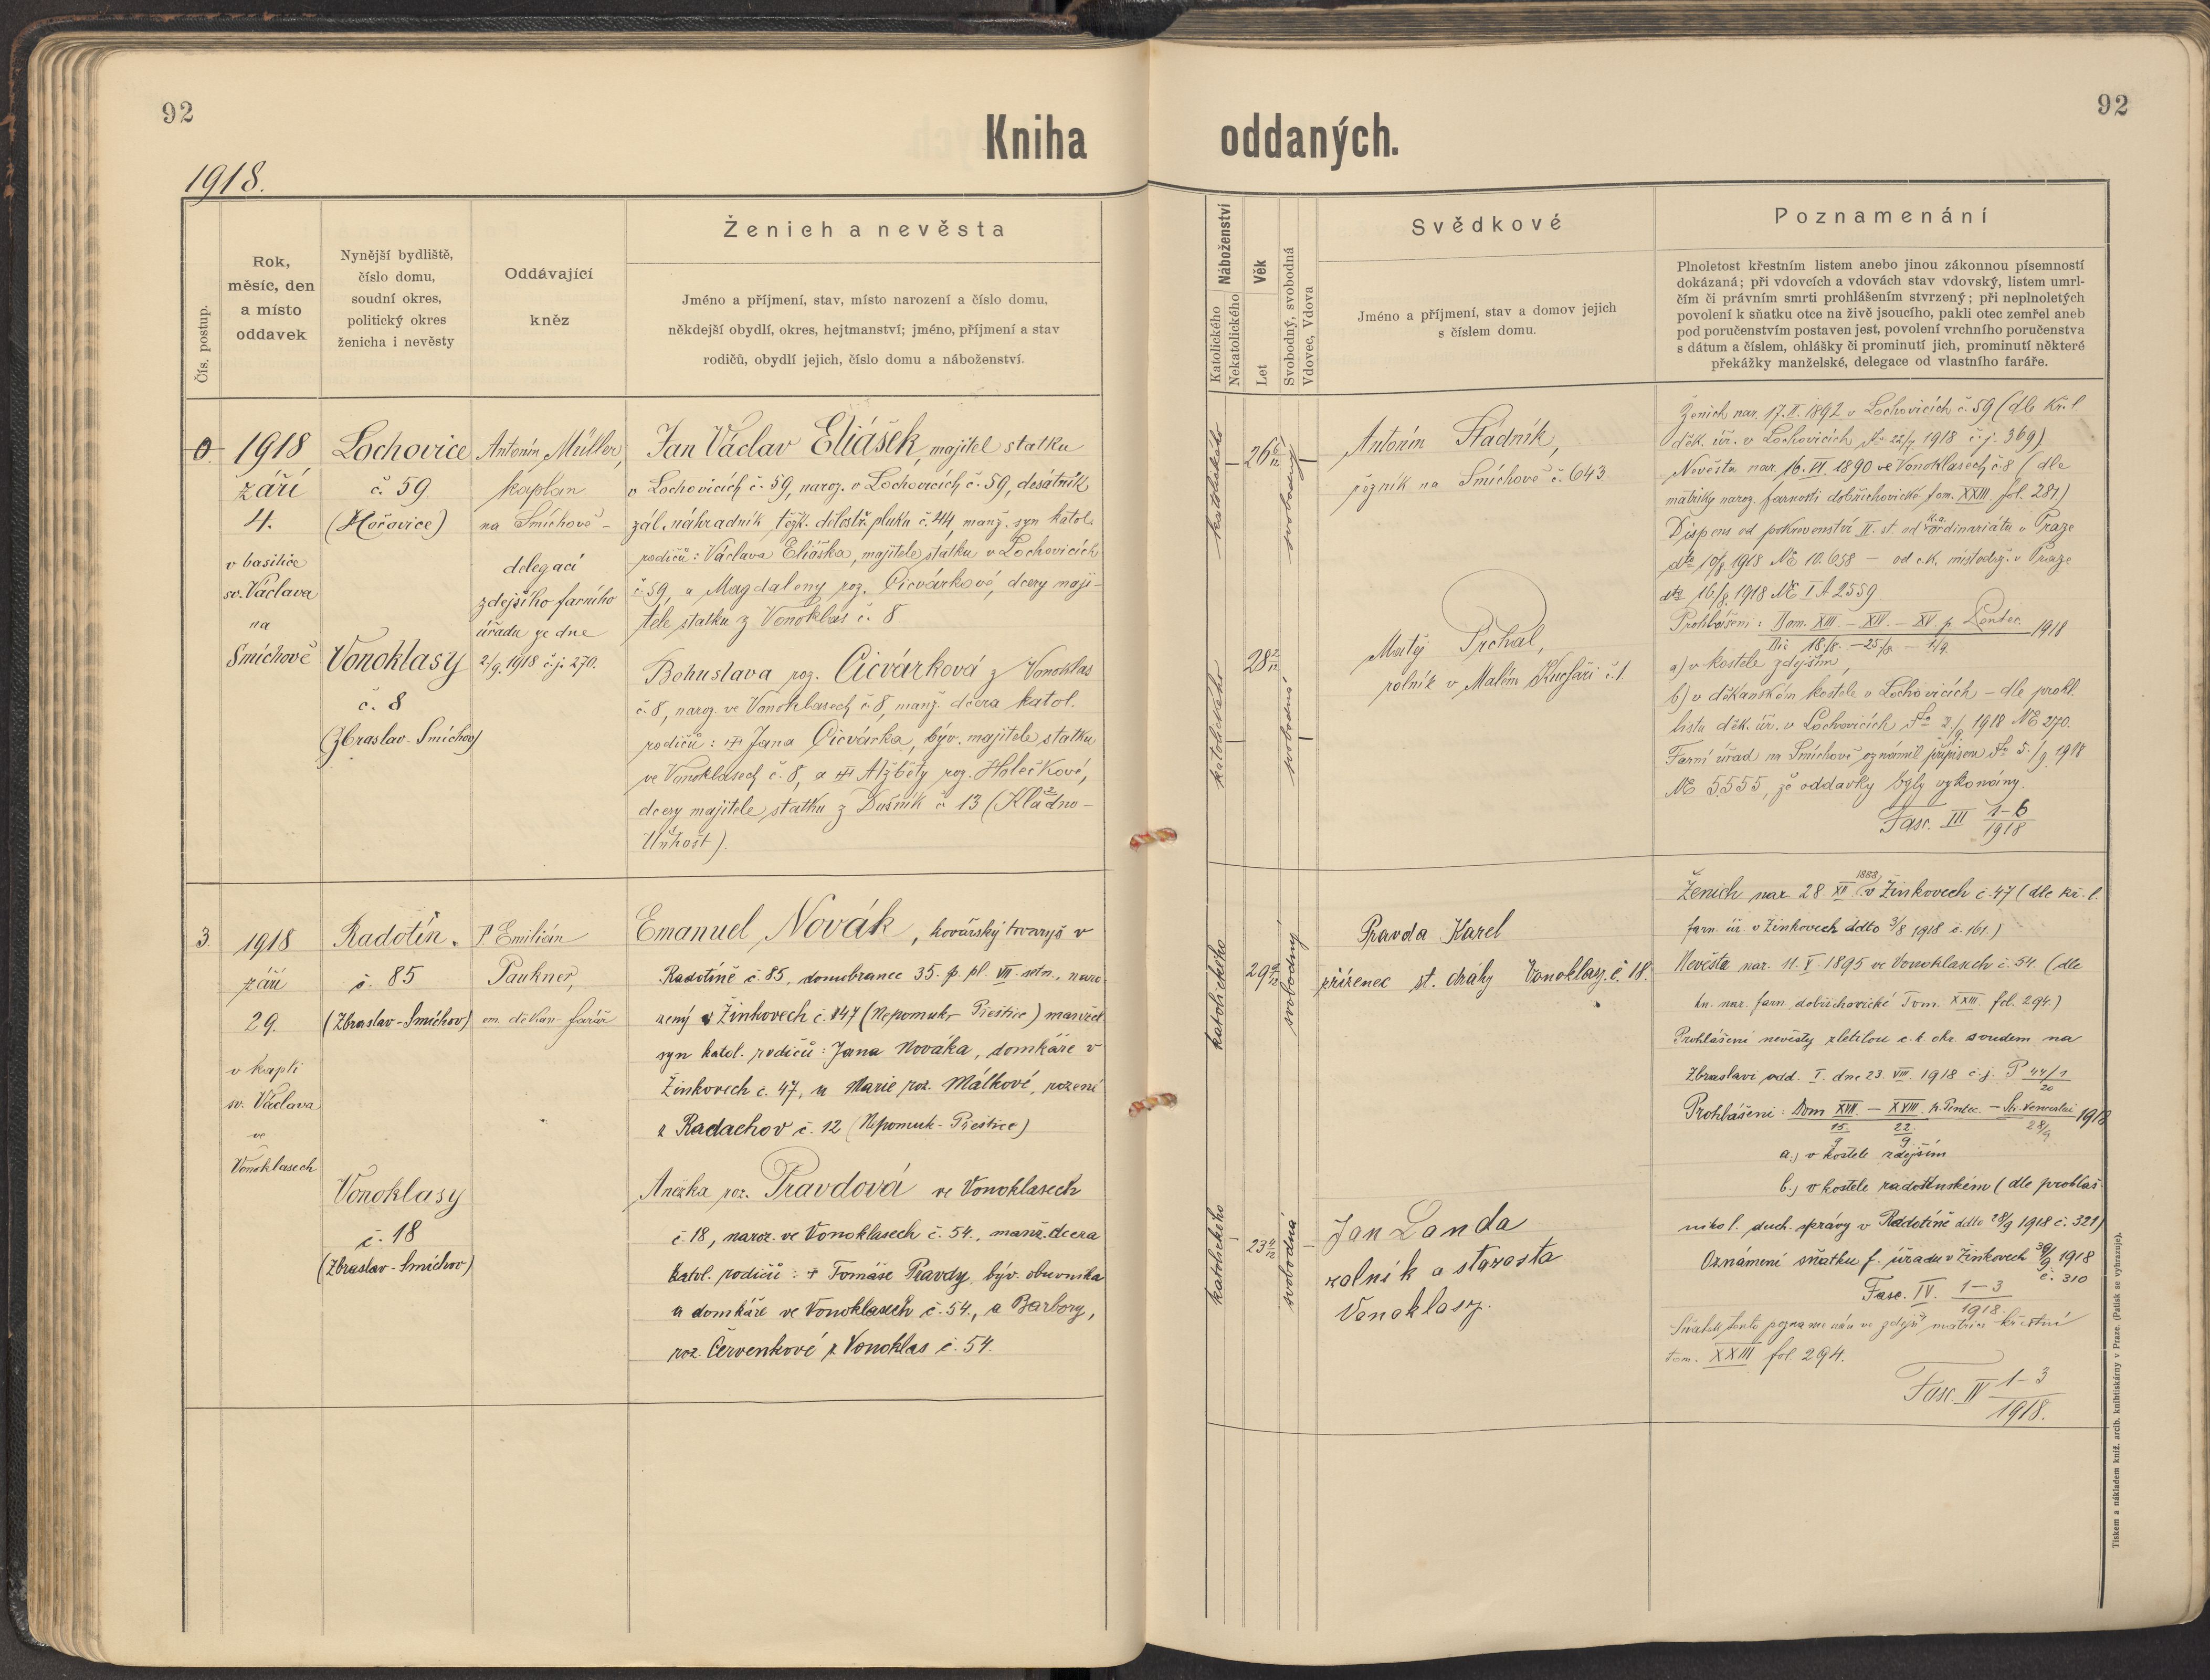 92
92
Kniha oddaných.
1918.
Čís. postup.
Rok,
měsíc, den
a místo
oddavek
Nynější bydliště,
číslo domu,
soudní okres,
politický okres
ženicha i nevěsty
Oddávající
kněz
Ženich a nevěsta
Jméno a příjmení, stav, místo narození a číslo domu,
někdejší obydlí, okres, hejtmanství; jméno, příjmení a stav
rodičů, obydlí jejich, číslo domu a náboženství.
Náboženství
Katolického
Nekatolického
Věk
Let
Svobodný, svobodná
Vdovec, Vdova
Svědkové
Jméno a příjmení, stav a domov jejich
s číslem domu.
Poznamenání
Plnoletost křestním listem anebo jinou zákonnou písemností
dokázaná; při vdovcích a vdovách stav vdovský, listem umrl-
čím či právním smrti prohlášením stvrzený; při neplnoletých
povolení k sňatku otce na živě jsoucího, pakli otec zemřel aneb
pod poručenstvím postaven jest, povolení vrchního poručenstva
s dátum a číslem, ohlášky či prominutí jich, prominutí některé
překážky manželské, delegace od vlastního faráře.
0
1918
září
4.
v basilice
sv. Václava
na
Smíchově
Lochovice
č. 59
(Hořovice)
Vonoklasy
č. 8
(Zbraslav-Smíchov)
Antonín Müller,
kaplan
na Smíchově –
delegací
zdejšího farního
úřadu ze dne
2/9. 1918 č.j. 270.
Jan Václav Eliášek, majitel statku
v Lochovicích č. 59, naroz. v Lochovicích č. 59, desátník
zál. náhradník těžk. dělostř. pluku č. 44, manž. syn katol.
rodičů: Václava Eliáška, majitele statku v Lochovicích
č. 59, a Magdaleny roz. Cicvárkové, dcery maji-
tele statku z Vonoklas č. 8
Bohuslava roz. Cicvárková z Vonoklas
č. 8, naroz. ve Vonoklasech č. 8, manž. dcera katol.
rodičů: Jana Cicvárka, býv. majitele statku
ve Vonoklasech č. 8, a Alžběty roz. Holečkové,
dcery majitele statku z Dušník č. 13 (Kladno-
Unhošť).
katolického
26 6/12
svobodný
katolického
28 2/12
svobodná
Antonín Stádník,
řezník na Smíchově č. 643.
Matěj Prchal,
rolník v Malém Kuchaři č. 1.
Ženich nar. 17. II. 1892 v Lochovicích č. 59 (dle kř. l.
děk. úř. v Lochovicích dto 22/7 1918 č.j. 369)
Nevěsta nar. 16. VI. 1890 ve Vonoklasech č. 8 (dle
matriky naroz. farnosti dobřichovické tom. XXIII. fol. 281)
Dispens od pokrevenství II. st. od k.a. ordinariátu v Praze
dto 10/8 1918 № 10.658 – od c.k. místodrž. v Praze
dto 16./8. 1918 № I A 2559.
Prohlášeni: Dom. XIII. – XIV. – XV. p. Pentec. 1918
Die 18./8. – 25/8 – 1/9.
a) v kostele zdejším,
b) v děkanském kostele v Lochovicích – dle prohl.
listu děk. úř. v Lochovicích dto 2./9. 1918 № 270.
Farní úřad na Smíchově oznámil přípisem dto 5./9. 1918
№ 5555, že oddavky byly vykonány.
Fasc. III 1–6/1918
3.
1918
září
29.
v kapli
sv. Václava
ve
Vonoklasech
Radotín.
č. 85
(Zbraslav-Smíchov)
Vonoklasy
č. 18
(Zbraslav-Smíchov)
P. Emilián
Paukner,
em. děkan-farář
Emanuel Novák, kovářský tovaryš v
Radotíně č. 85, domobranec 35. p. pl. VII. setn., naro-
zený v Žinkovech č. 47 (Nepomuk-Přeštice) manžel.
syn katol. rodičů: Jana Nováka, domkáře v
Žinkovech č. 47, a Marie roz. Málkové, rození
z Radachov č. 12 (Nepomuk-Přeštice)
Anežka roz. Pravdová ve Vonoklasech
č. 18, naroz. ve Vonoklasech č. 54., manž. dcera
katol. rodičů: † Tomáše Pravdy, býv. obuvníka
a domkáře ve Vonoklasech č. 54., a Barbory,
roz. Červenkové z Vonoklas č. 54.
katolického
svobodný
katolického
svobodná
Pravda Karel
zřízenec st. dráhy Vonoklasy. č. 18.
Jan Landa
rolník a starosta
Vonoklasy.
Ženich nar. 28. XII 1888 v Žinkovech č. 47 (dle kř. l.
farn. úř. v Žinkovech ddto 3/8 1918 č. 161.)
Nevěsta nar. 11. V. 1895 ve Vonoklasech č. 54. (dle
kn. nar. farn. dobřichovické Tom. XXIII. fol. 294.)
Prohlášení nevěsty zletilou c. k. okr. soudem na
Zbraslavi odd. I. dne 23. VIII. 1918 č.j. P 44/1 20
Prohlášeni: Dom XVII. – XVIII. p. Pentec. – St. Venceslai 1918
15./9 22./9 28/9
a.) v kostele zdejším
b.) v kostele radotínském (dle prohláš.
duch. správy v Radotíně ddto 28/9 1918 č. 321)
Oznámení sňatku f. úřadu v Žinkovech 30/9 1918
č. 310
Fasc. IV. 1–3/1918.
Sňatek tento poznamenán ve zdejší matrice křestní
tom. XXIII fol. 294.
Fasc. IV 1–3/1918.
Tiskem a nákladem kníž. arcib. knihtiskárny v Praze. (Patisk se vyhrazuje).